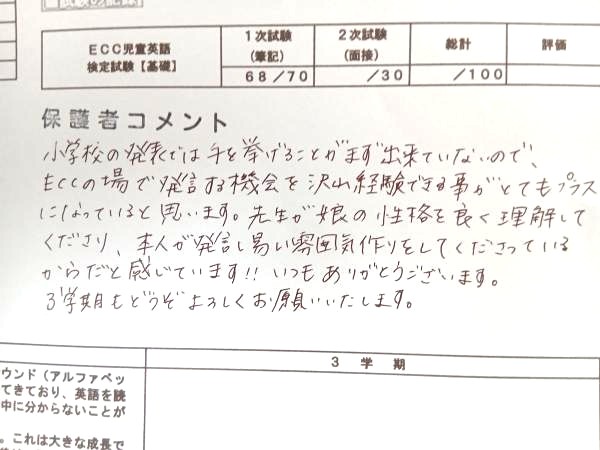 試験の記録
ECC児童英語
検定試験【基礎】
1次試験
(筆記)
2次試験
(面接)
総計
評価
68/70
/30
/100
保護者コメント
小学校の発表では手を挙げることがまず出来ていないので、
ECCの場で発言する機会を沢山経験できる事がとてもプラス
になっていると思います。先生が娘の性格を良く理解して
くださり、本人が発言し易い雰囲気作りをしてくださっている
からだと感じています!!いつもありがとうございます。
3学期もどうぞよろしくお願いいたします。
3学期
ウンド(アルファベッ
てきており、英語を読
中に分からないことが
。これは大きな成長で